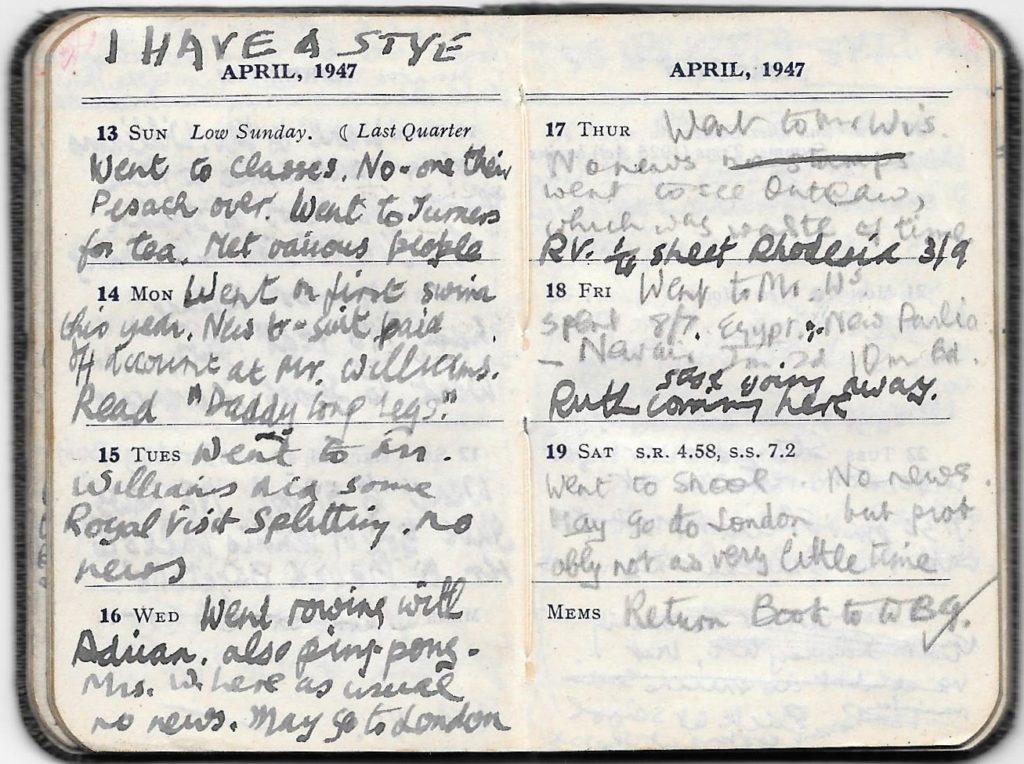 I HAVE A STYE
APRIL, 1947
13 SUN Low Sunday. ☾ Last Quarter
Went to classes. No-one their
Pesach over. Went to Turners
for tea. Met various people
14 MON Went on first swim
this year. New b-suit paid
off account at Mr. Williams.
Read "Daddy Long Legs."
15 TUES Went to Mr.
Williams did some
Royal Visit Splitting. no
news
16 WED Went rowing with
Adrian. also ping-pong.
Mrs. W. here as usual
no news. May go to London
APRIL, 1947
17 THUR Went to Mr W's.
No news no stamps
went to see Outlaw,
which was waste of time
RV. sheet Rhodesia 3/9
18 FRI Went to Mr. W's
spent 8/7. Egypt, New Parlia
10m
stax going away.
Ruth coming here
19 SAT S.R. 4.58, S.S. 7.2
Went to Shool. No news.
May go to London but prob
ably not as very little time
MEMS Return Book to WBG.